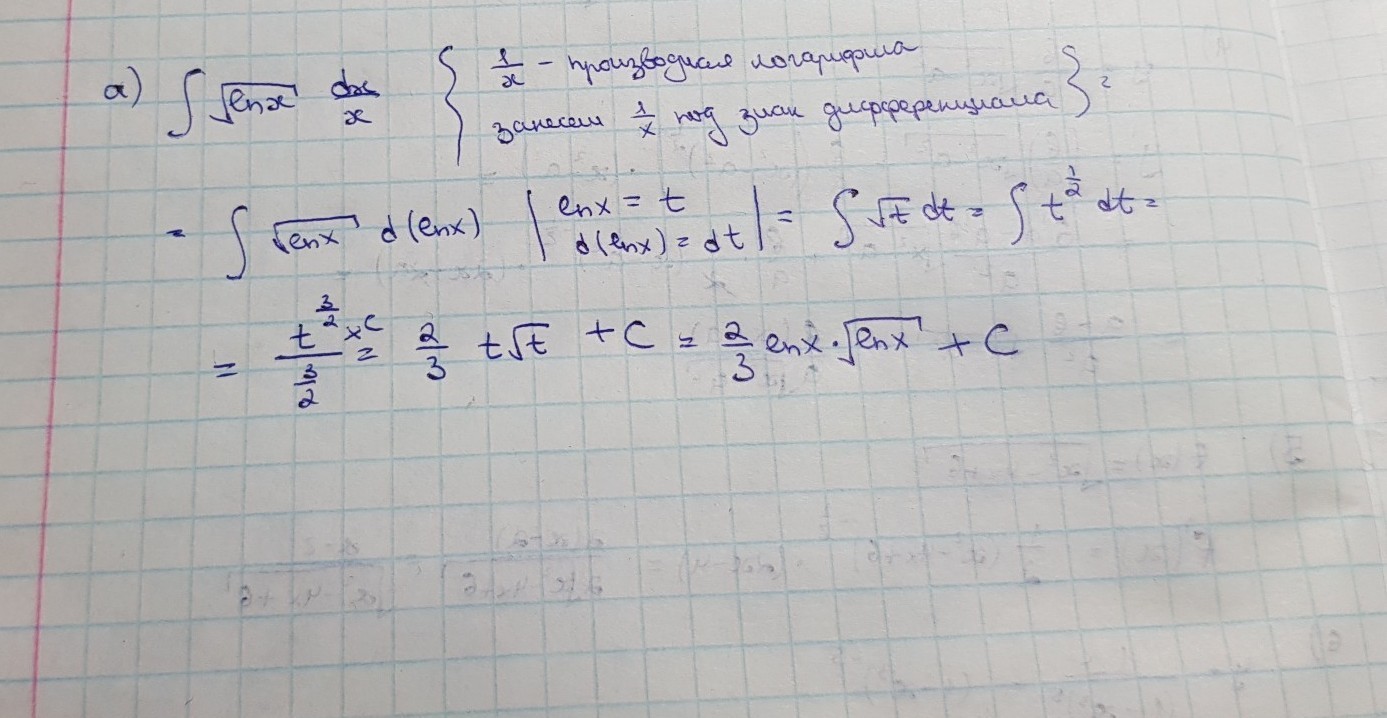 а) ∫ √lnx dx/x { 1/x – производная логарифма
занесем 1/x под знак дифференциала } =
= ∫ √lnx d(lnx) | lnx = t
d(lnx) = dt | = ∫ √t dt = ∫ t^(1/2) dt =
= t^(3/2)/(3/2) +C = 2/3 t√t + C = 2/3 lnx·√lnx + C